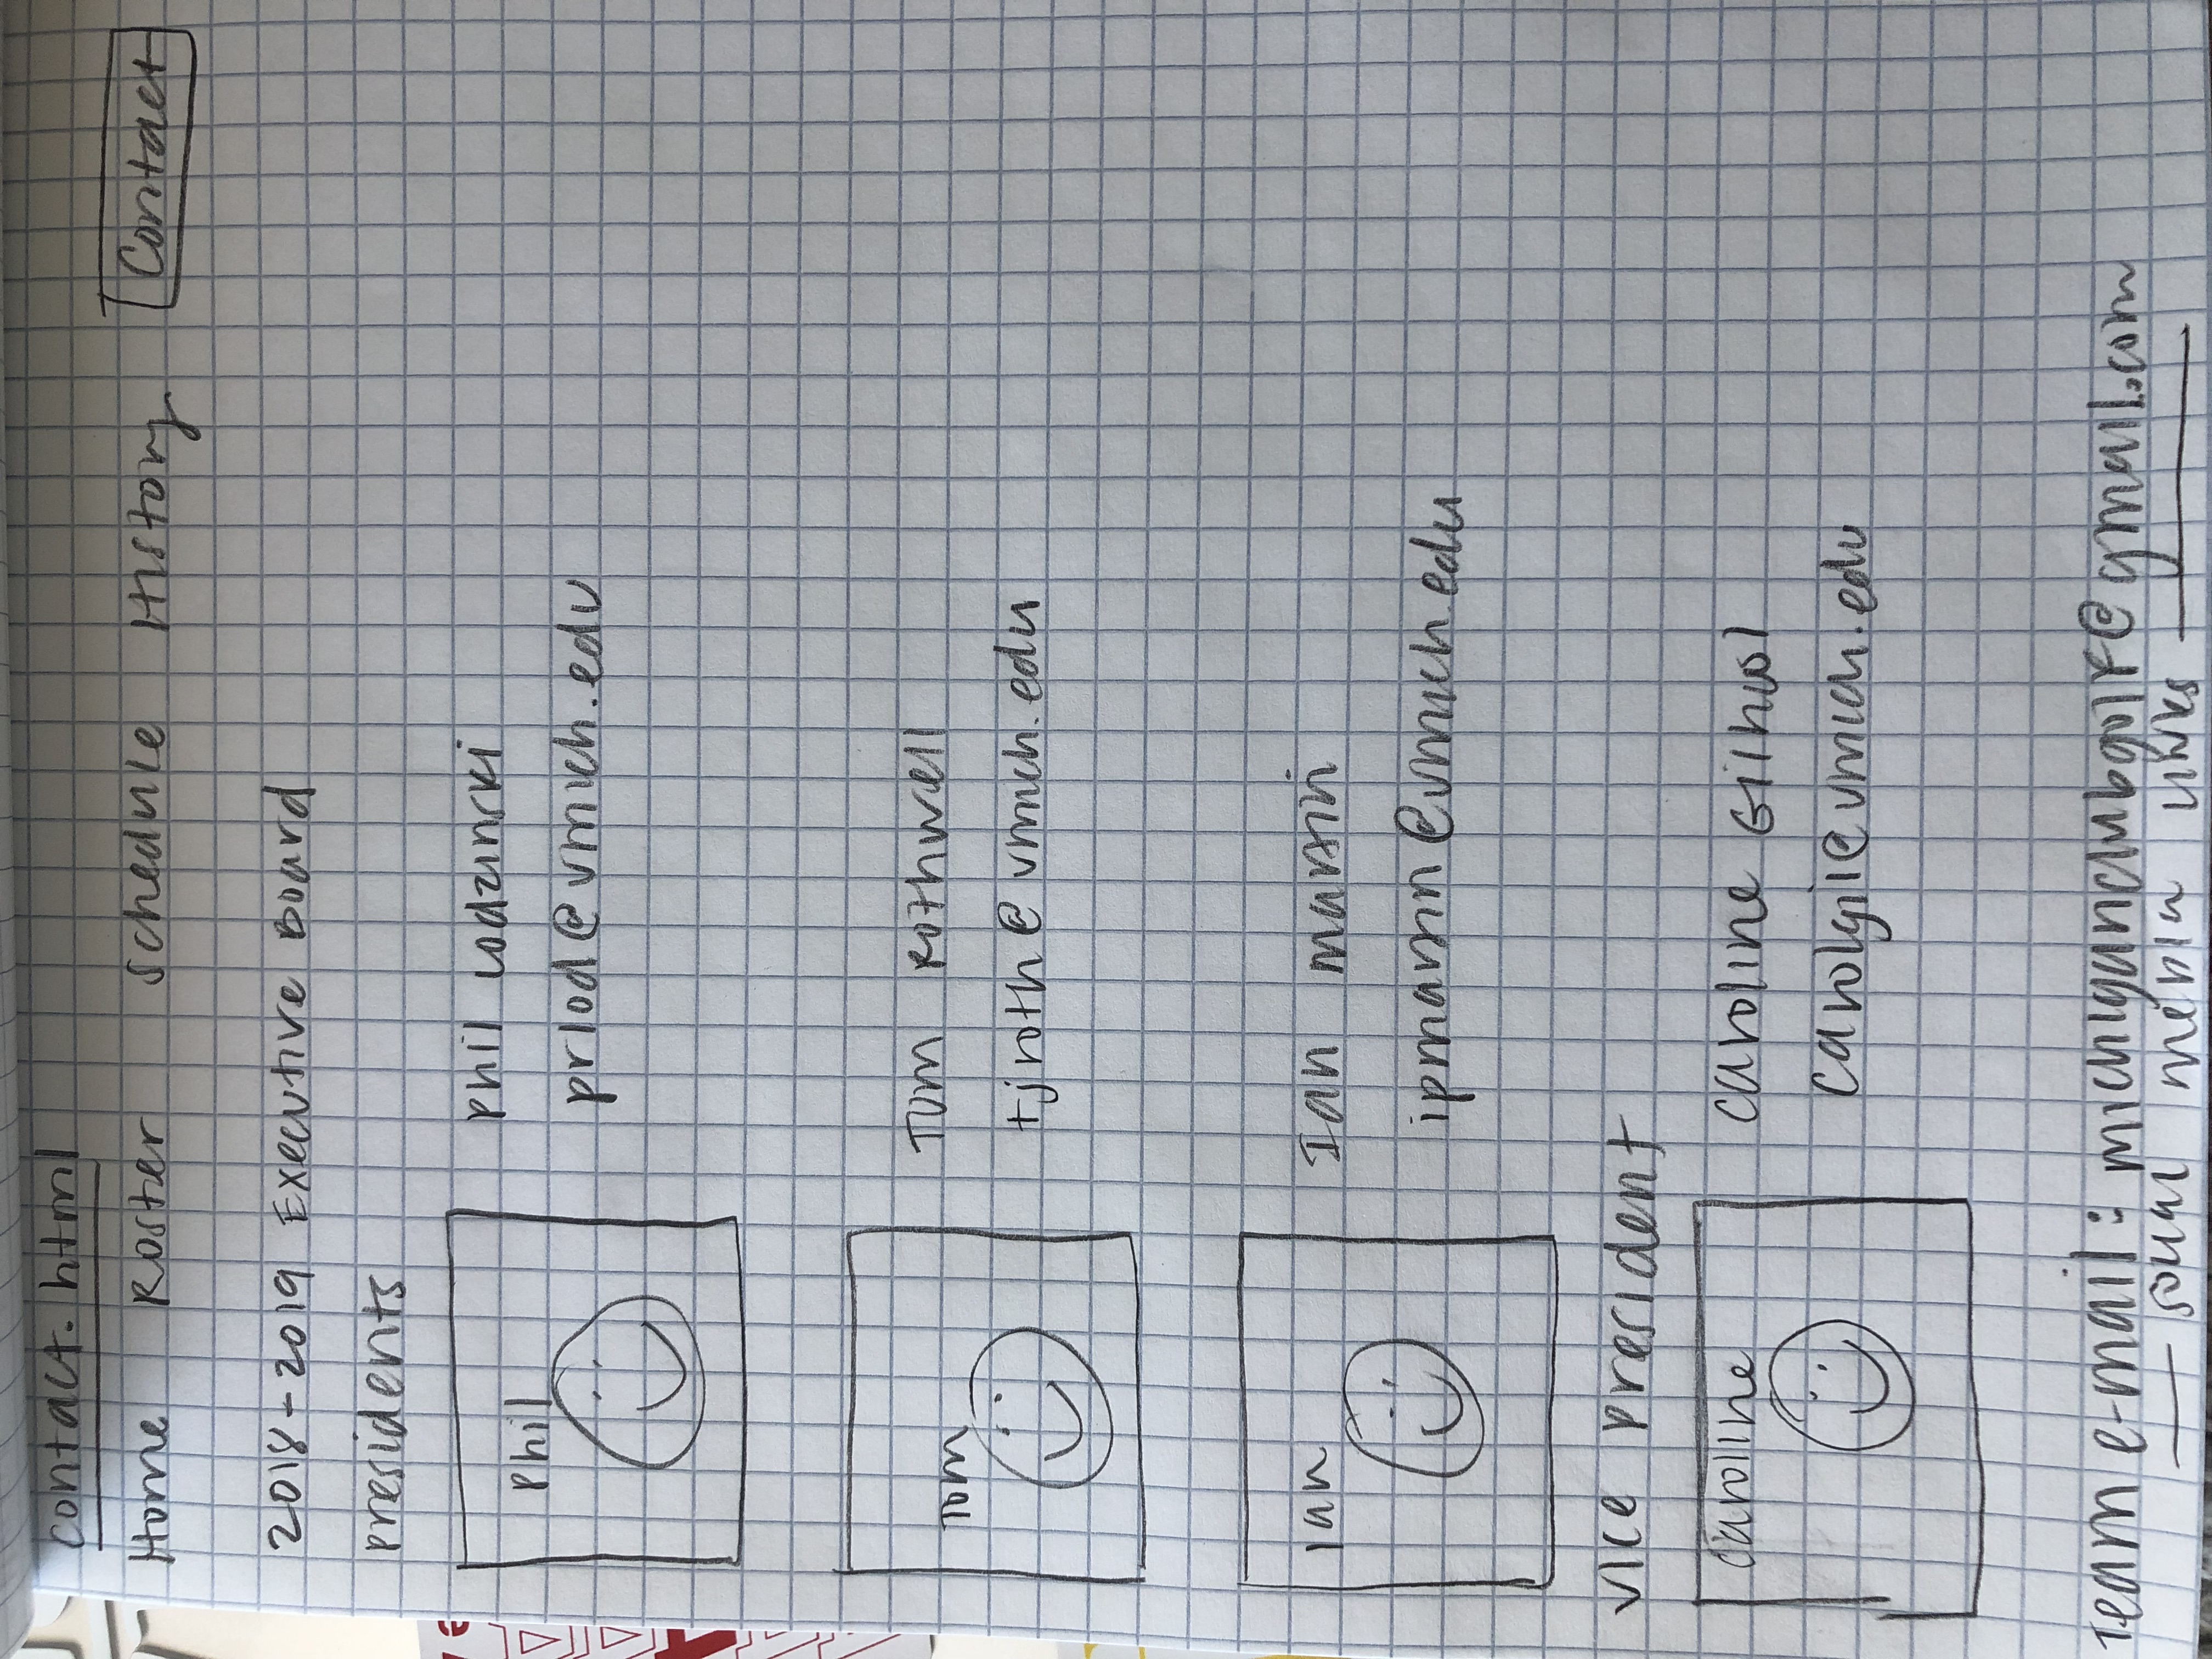 contact.html
Home Roster Schedule History Contact
2018-2019 Executive Board
Presidents
Phil Lodzinski
Phil
prlod@umich.edu
Tom Rothwell
Tom
tjroth@umich.edu
Ian Martin
Ian
ipmartin@umich.edu
Vice President
Caroline
Caroline Gilhool
carolgil@umich.edu
Team e-mail: michiganclubgolf@gmail.com
social media links